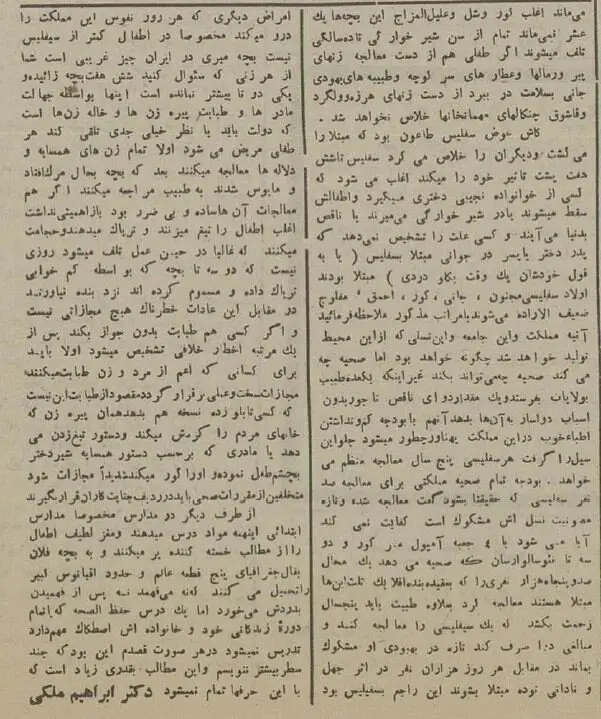 می‌ماند اغلب کور وشل وعلیل‌المزاج این بچه‌ها یك
عشر نمی‌ماند تمام از سن شیر خوار گی تاده‌سالگی
تلف میشوند اگر طفلی هم از دست معالجه زنهای
پیر ورمالها وعطار های سر کوچه وطبیبه‌های‌یهودی
جانی بسلامت در ببرد از دست زنهای هرزه‌وولگرد
وقاشوق چنگالهای مهمانخانها خلاص نخواهد شد .
کاش عوض سفلیس طاعون بود که مبتلا را
می کشت ودیگران را خلاص می کرد سفلیس تاشش
هفت پشت تاثیر خود را میکند اغلب می شود که
کسی از خوانواده نجیبی دختری میگیرد واطفالش
سقط میشوند یادر شیر خوار گی می‌میرند یا ناقص
بدنیا می‌آیند و کسی علت را تشخیص نمی‌دهد که
پدر دختر یاپسر در جوانی مبتلا بسفلیس ( یا به
قول خودشان یك وقت بکاو دردی ) مبتلا بودند
اولاد سفلیسی‌مجنون ، جانی ، کور ، احمق ، مفلوج
ضعیف الاراده می‌شوند بامراتب مذکور ملاحظه‌فرمائید
آتیه مملکت واین جامعه واین‌نسلی که ازاین محیط
تولید خواهد شد چگونه خواهد بود اما صحیه چه
می کند صحیه چه‌می‌تواند بکند غیراینکه یکعده‌طبیب
بولایات بفرستدویك مقداردوای ناقص تاجوریدون
اسباب دواسار به‌آن‌ها بدهد آنهم بابودجه کم‌ونداشتن
اطباءخوب دراین مملکت پهناورچطور میشود جلواین
سیل‌را گرفت هرسفلیسی پنج سال معالجه منظم می
خواهد . بودجه تمام صحیه مملکتی برای معالجه صد
نفر سفلیسی که حقیقتا بشود گفت معالجه شده وتازه
مصونیت نسل اش مشکوك است کفایت نمی کند
آیا می شود با ٤ جعبه آمپول مر کور و دو
سه تا نئوسالوارسان که صحیه می دهد یك محال
صدوپنجاه‌هزار نفری‌را که بعقیده‌بنده‌اقلا یك ثلث‌این‌ها
مبتلا هستند معالجه کرد بعلاوه طبیب باید پنجسال
زحمت بکشد که یك سفیلیسی را معالجه کند و
مبالغی دوا صرف کند تازه در بهبودی او مشکوك
بماند در مقابل هر روز هزاران نفر در اثر جهل
و نادانی توده مبتلا بشوند این راجم بسفیلیس بود
امراض دیگری که هر روز نفوس این مملکت را
درو میکند مخصوصا در اطفال کمتر از سیفلیس
نیست بچه میری در ایران چیز غریبی است شما
از هر زنی که سئوال کنید شش هفت‌بچه زائیده‌و
یکی دو تا بیشتر نمانده است اینها بواسطه جهالت
مادر ها و طبابت پیره زن ها و خاله زن‌ها است
که دولت باید با نظر خیلی جدی تلقی کند هر
طفلی مریض می شود اولا تمام زن های همسایه و
دلاله ها معالجه میکنند بعد که بچه بحال مرك‌افتاد
و مایوس شدند به طبیب مراجعه میکنند اگر هم
معالجات آن هاساده و بی ضرر بود بازاهمیتی‌نداشت
اغلب اطفال را تیغ میزنند و تریاك میدهندوحجامت
میکنند که‌غالبا در حین عمل تلف میشود روزی
نیست که دو سه تا بچه که بو اسطه کم خوابی
تریاك داده و مسموم کرده اند نزد بنده نیاورند
در مقابل این عادات خطرناك هیچ مجازاتی نیست
و اگر کسی هم طبابت بدون جواز بکند پس از
یك مرتبه اخطار خلافی تشخیص میشود اولا باید
برای کسانی که اعم از مرد و زن طبابت‌میکنند
مجازات‌سخت‌وعملی‌بر قرار گردد مقصوداز طبابت‌این‌نیست
که کسی‌تابلو زده نسخه هم بدهدهمان پیره زن که
خانهای مردم را گردش میکند ودستور تیغ‌زدن می
دهد یا مادری که برحسب دستور همسایه شیردختر
بچشم‌طفل نموده‌و اورا کور میکندشدیداً مجازات شود
متخلفین‌از مقررات‌صحی باید در ردیف‌جنایت‌کاران‌قرار گیرند
از طرف دیگر در مدارس مخصوصا مدارس
ابتدائی اینهمه مواد درس میدهند ومغز لطیف اطفال
رااز مطالب خسته کننده پر میکنند و به بچه فلان
بقال‌جغرافیای پنج قطعه عالم و حدود اقیانوس کبیر
راتحمیل می کنند که‌نه می‌فهمد نه پس از فهمیدن
بدردش می‌خورد اما یك درس حفظ الصحه که‌باتمام
دورهٔ زندگانی خود و خانواده اش اصطکاك مهم‌دارد
تدریس نمیشود درهر صورت قصدم این بود که چند
سطر بیشتر ننویسم واین مطالب بقدری زیاد است که
با این حرفها تمام نمیشود دکتر ابراهیم ملکی